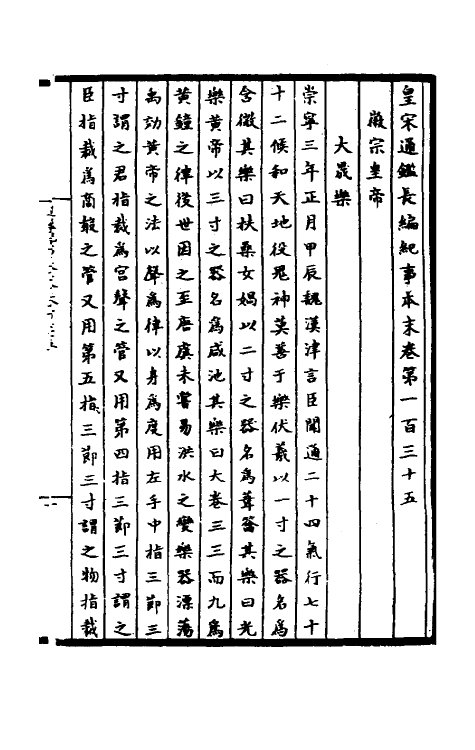 皇宋通鑑長編紀事本末卷第一百三十五
徽宗皇帝
大晟樂
崇寧三年正月甲辰魏漢津言臣聞通二十四氣行七十
十二候和天地役鬼神莫善于樂伏羲以一寸之器名爲
含微其樂曰扶桑女媧以二寸之器名爲葦籥其樂曰光
樂黄帝以三寸之器名爲咸池其樂曰大卷三三而九爲
黄鐘之律後世因之至唐虞未嘗易洪水之變樂器漂蕩
禹効黄帝之法以聲爲律以身爲度用左手中指三節三
寸謂之君指裁爲宫聲之管又用第四指三節三寸謂之
臣指裁爲商聲之管又用第五指三節三寸謂之物指裁